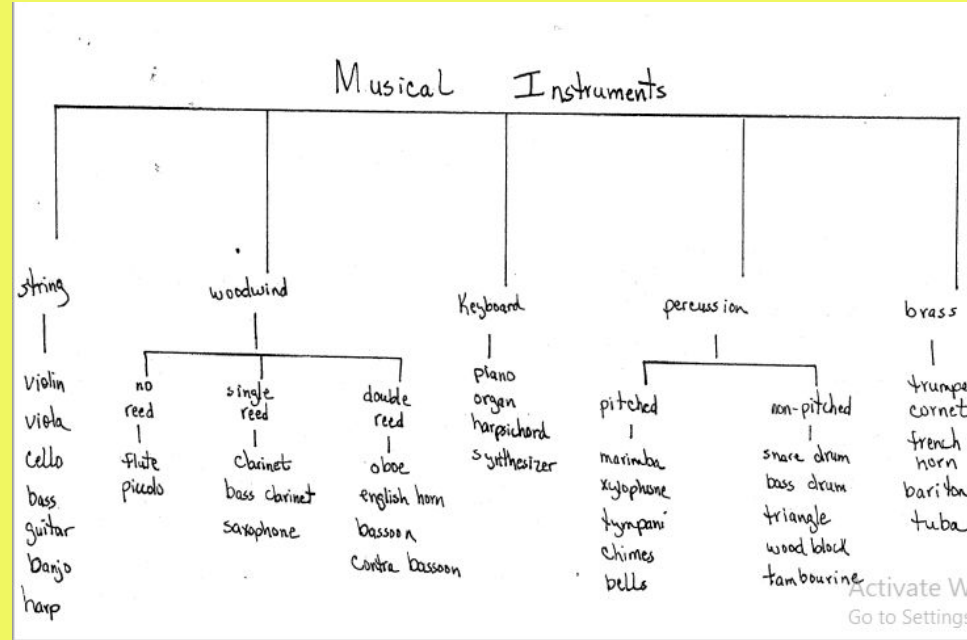 Musical Instruments
string
violin
viola
cello
bass
guitar
banjo
harp
woodwind
no
reed
flute
piccolo
single
reed
clarinet
bass clarinet
saxophone
double
reed
oboe
english horn
bassoon
contra bassoon
Keyboard
piano
organ
harpsichord
synthesizer
percussion
pitched
marimba
xylophone
tympani
chimes
bells
non-pitched
snare drum
bass drum
triangle
wood block
tambourine
brass
trumpe
cornet
french
horn
bariton
tuba
Activate W
Go to Settings